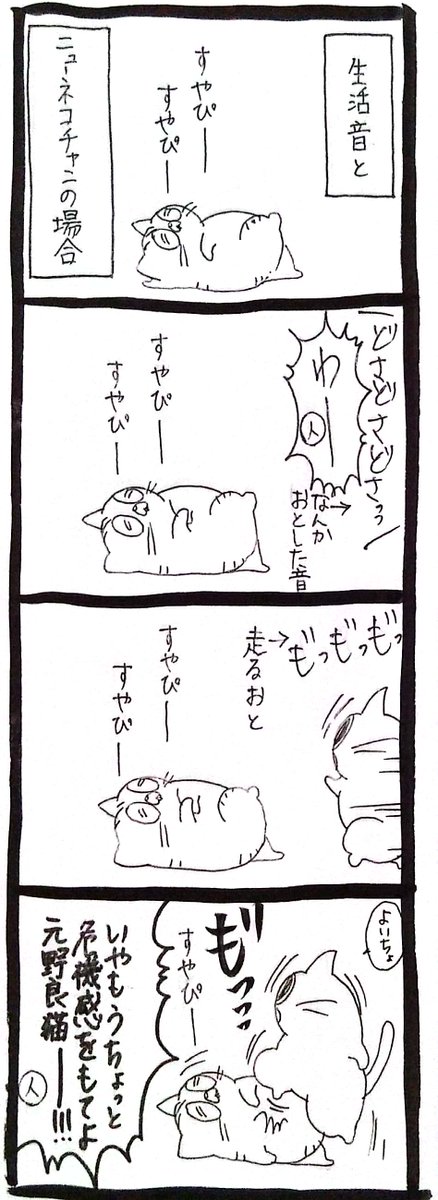 生活音と
ニューネコチャンの場合
すやぴー
すやぴー
どさどさどさっっ
わー
人
なんか
おとした音
すやぴー
すやぴー
もっもっもっ
走るおと
すやぴー
すやぴー
よいちょ
もっっっ
すやぴー
いやもうちょっと
危機感をもてよ
元野良猫ーー!!!
人